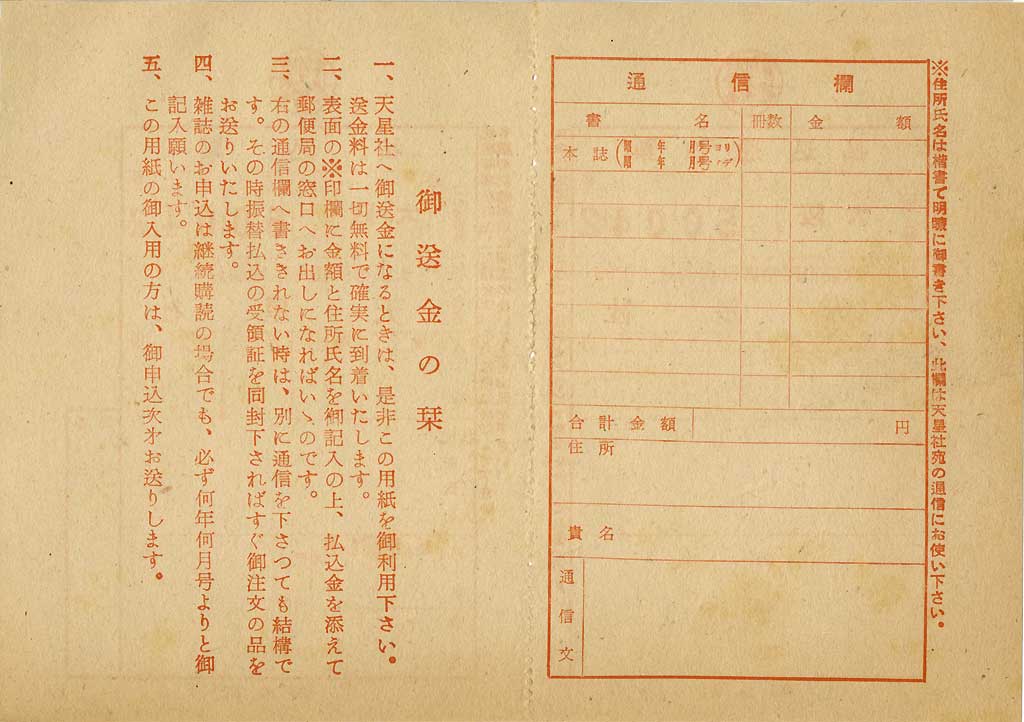 ※住所氏名は楷書で明瞭に御書き下さい、此欄は天星社宛の通信にお使い下さい。
通信欄
書名 冊数 金額
本誌(昭 年 月号ヨリ
昭 年 月号マデ)
合計金額 円
住所
貴名
通信文
御送金の栞
一、天星社へ御送金になるときは、是非この用紙を御利用下さい。
送金料は一切無料で確実に到着いたします。
二、表面の※印欄に金額と住所氏名を御記入の上、払込金を添えて
郵便局の窓口へお出しになればいゝのです。
三、右の通信欄へ書ききれない時は、別に通信を下さつても結構で
す。その時振替払込の受領証を同封下さればすぐ御注文の品を
お送りいたします。
四、雑誌のお申込は継続購読の場合でも、必ず何年何月号よりと御
記入願います。
五、この用紙の御入用の方は、御申込次才お送りします。